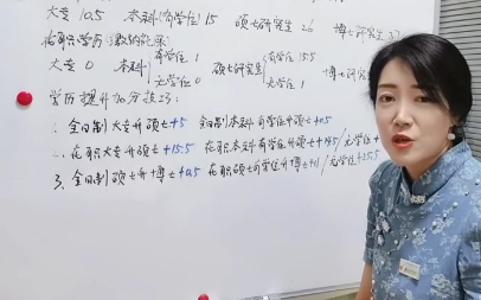 大专 10.5 本科(有学位)15 硕士研究生 26 博士研究生 37
在职学历(缴纳社保)
大专 0 本科 有学位 1 无学位 0 硕士研究生 有学位 15.5 无学位 1 博士研究
学历提升加分技巧:
1. 全日制大专升硕士+5 全日制本科有学位升硕士+0.5
2. 在职大专升硕士+15.5 在职本科有学位升硕士+14.5/无学位+
3. 全日制硕士升博士+0.5 在职硕士有学位升博士+11/无学位+25.5